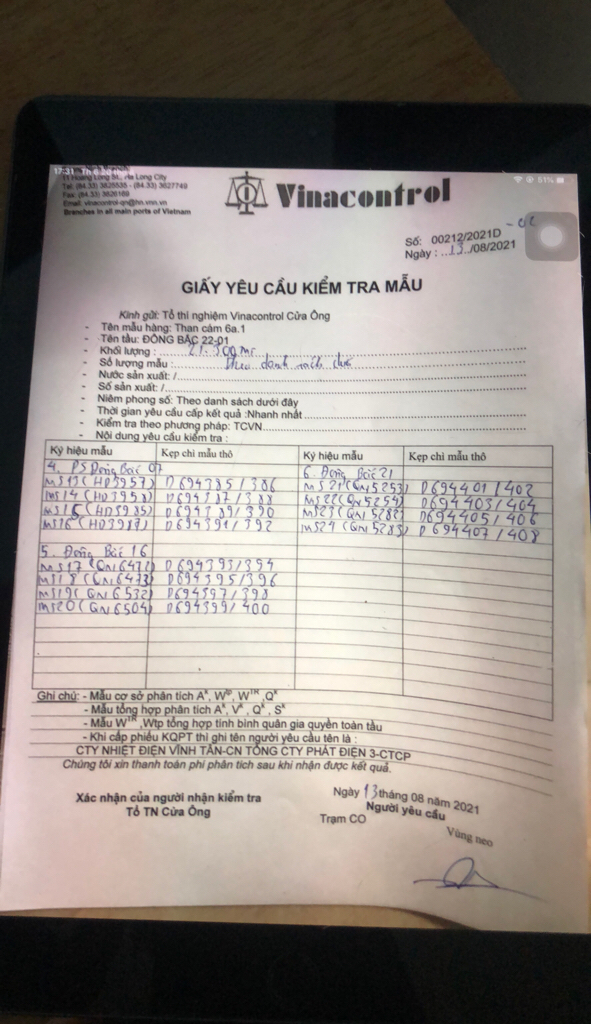 17:31 Th 6
51%
11 Hoang Long St., Ha Long City
Tel: (84.33) 3825535 - (84.33) 3627749
Fax: (84.33) 3826169
Email: vinacontrol-qn@hn.vnn.vn
Branches in all main ports of Vietnam
Vinacontrol
Số: 00212/2021D
Ngày : ..13../08/2021
GIẤY YÊU CẦU KIỂM TRA MẪU
Kính gửi: Tổ thí nghiệm Vinacontrol Cửa Ông
- Tên mẫu hàng: Than cám 6a.1
- Tên tầu: ĐÔNG BẮC 22-01
- Khối lượng : 21.300
- Số lượng mẫu : Theo danh sách
- Nước sản xuất: /
- Số sản xuất: /
- Niêm phong số: Theo danh sách dưới đây
- Thời gian yêu cầu cấp kết quả :Nhanh nhất
- Kiểm tra theo phương pháp: TCVN
- Nội dung yêu cầu kiểm tra :
Ký hiệu mẫu Kẹp chì mẫu thô Ký hiệu mẫu Kẹp chì mẫu thô
4. PS Đông Bắc 07 6. Đông Bắc 21
MS13 (HD3957) D694385/386 MS21 (QN5253) D694401/402
MS14 (HD3958) D694387/388 MS22 (QN5254) D694403/404
MS15 (HD3985) D694389/390 MS23 (QN5282) D694405/406
MS16 (HD3987) D694391/392 MS24 (QN5283) D694407/408
5. Đông Bắc 16
MS17 (QN6472) D694393/394
MS18 (QN6473) D694395/396
MS19 (QN6532) D694397/398
MS20 (QN6504) D694399/400
Ghi chú: - Mẫu cơ sở phân tích Aᵏ, Wᵗᵖ, Wᵀᴿ, Qᵏ
- Mẫu tổng hợp phân tích Aᵏ, Vᵏ , Qᵏ , Sᵏ
- Mẫu Wᵀᴿ, Wtp tổng hợp tính bình quân gia quyền toàn tầu
- Khi cấp phiếu KQPT thì ghi tên người yêu cầu tên là :
CTY NHIỆT ĐIỆN VĨNH TÂN-CN TỔNG CTY PHÁT ĐIỆN 3-CTCP
Chúng tôi xin thanh toán phí phân tích sau khi nhận được kết quả.
Ngày 13 tháng 08 năm 2021
Xác nhận của người nhận kiểm tra Người yêu cầu
Tổ TN Cửa Ông Trạm CO
Vùng neo